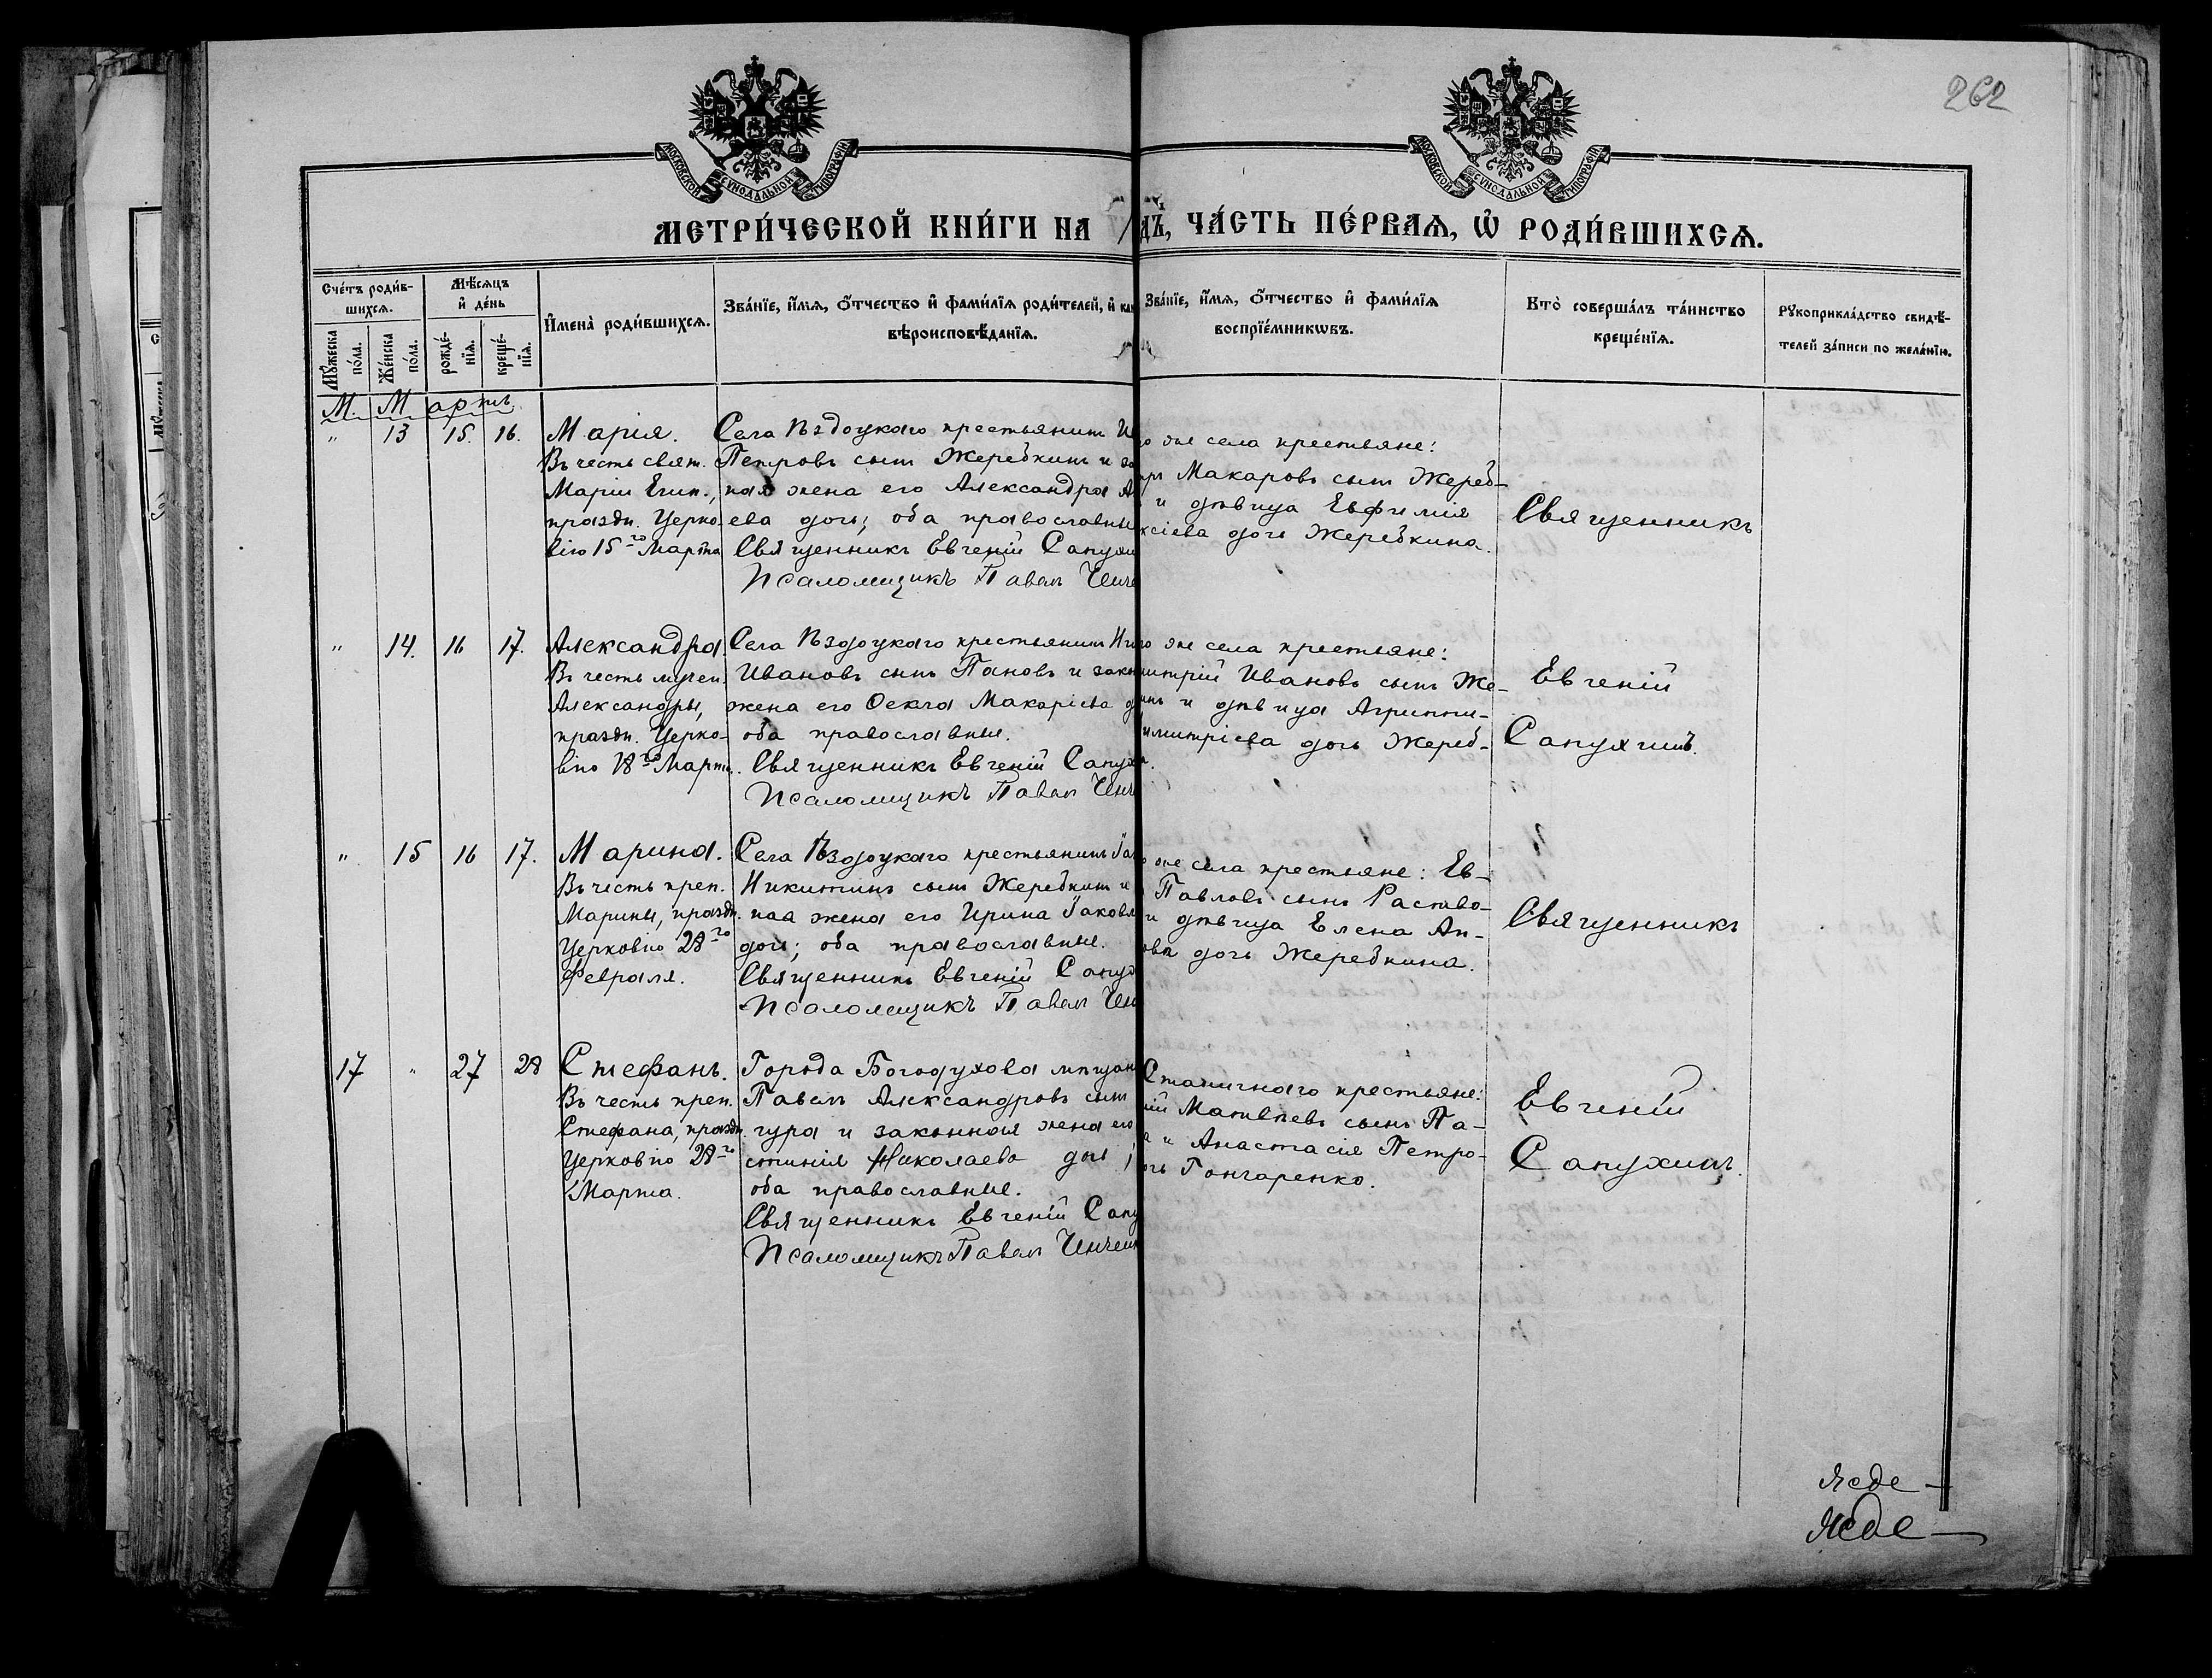 262
МОСКОВСКОЙ СѴНОДАЛЬНОЙ ТИПОГРАФІИ
МОСКОВСКОЙ СѴНОДАЛЬНОЙ ТИПОГРАФІИ
МЕТРИ́ЧЕСКОЙ КНИ́ГИ НА
ДЪ, ЧА́СТЬ ПЕ́РВАѦ, Ѡ҆ РОДИ́ВШИХСѦ.
Сче́тъ роди́в-
шихсѧ.
Мѣ́сѧцъ
и҆ де́нь
Мꙋ́жеска
по́ла.
Же́нска
по́ла.
рожде́-
нїѧ.
креще́-
нїѧ.
И҆мена̀ роди́вшихсѧ.
Зва́нїе, и҆́мѧ, ѻ҆́тчество и҆ фами́лїѧ роди́телей, и҆
вѣроисповѣ́данїѧ.
Зва́нїе, и҆́мѧ, ѻ҆́тчество и҆ фами́лїѧ
воспрїе́мникѡвъ.
Кто̀ соверша́лъ та́инство
креще́нїѧ.
Рꙋкоприкла́дство свидѣ́-
телей за́писи по жела́нїю.
М. Мартъ
" 13 15. 16.
Марія.
Въ честь свят.
Маріи Егип.,
праздн. Церко-
вію 15го Марта
Села крестьянинъ
Петровъ сынъ Жеребкинъ и за
ная жена его Александра А
ева дочь; оба православны
Священникъ Евгеній Сапухи
Псаломщикъ Павелъ
го же села крестьяне:
Макаровъ сынъ Жереб-
и дѣвица Евфимія
ксіева дочь Жеребкина.
Священникъ
" 14. 16 17.
Александра
Въ честь мучен.
Александры,
праздн. Церко-
вію 18го Марта.
Села крестьянинъ
Ивановъ сынъ Пановъ и закон
жена его Ѳекла Макаріева д
оба православные.
Священникъ Евгеній Сапухи
Псаломщикъ Павелъ
го же села крестьяне:
митрій Ивановъ сынъ Же-
и дѣвица Агриппи-
имитріева дочь Жереб-
Евгеній
Сапухинъ.
" 15 16 17.
Марина.
Въ честь преп.
Марины, праздн.
Церковію 28го
Февраля.
Села крестьянинъ
Никитинъ сынъ Жеребкинъ и
ная жена его Ирина Іаковл
дочь; оба православные.
Священникъ Евгеній Сапух
Псаломщикъ Павелъ
же села крестьяне: Ев-
Павловъ сынъ Раство-
и дѣвица Елена Ан-
ова дочь Жеребкина.
Священникъ
17 " 27 28
Стефанъ.
Въ честь преп.
Стефана, праздн.
Церковію 28го
Марта.
Города Богодухова мѣщан
Павелъ Александровъ сынъ
гура и законная жена его
стинія Николаева дочь;
оба православные.
Священникъ Евгеній Сапу
Псаломщикъ Павелъ
Станичнаго крестьяне:
ній Матвѣевъ сынъ Па-
а и Анастасія Петро-
очь Гончаренко.
Евгеній
Сапухинъ.